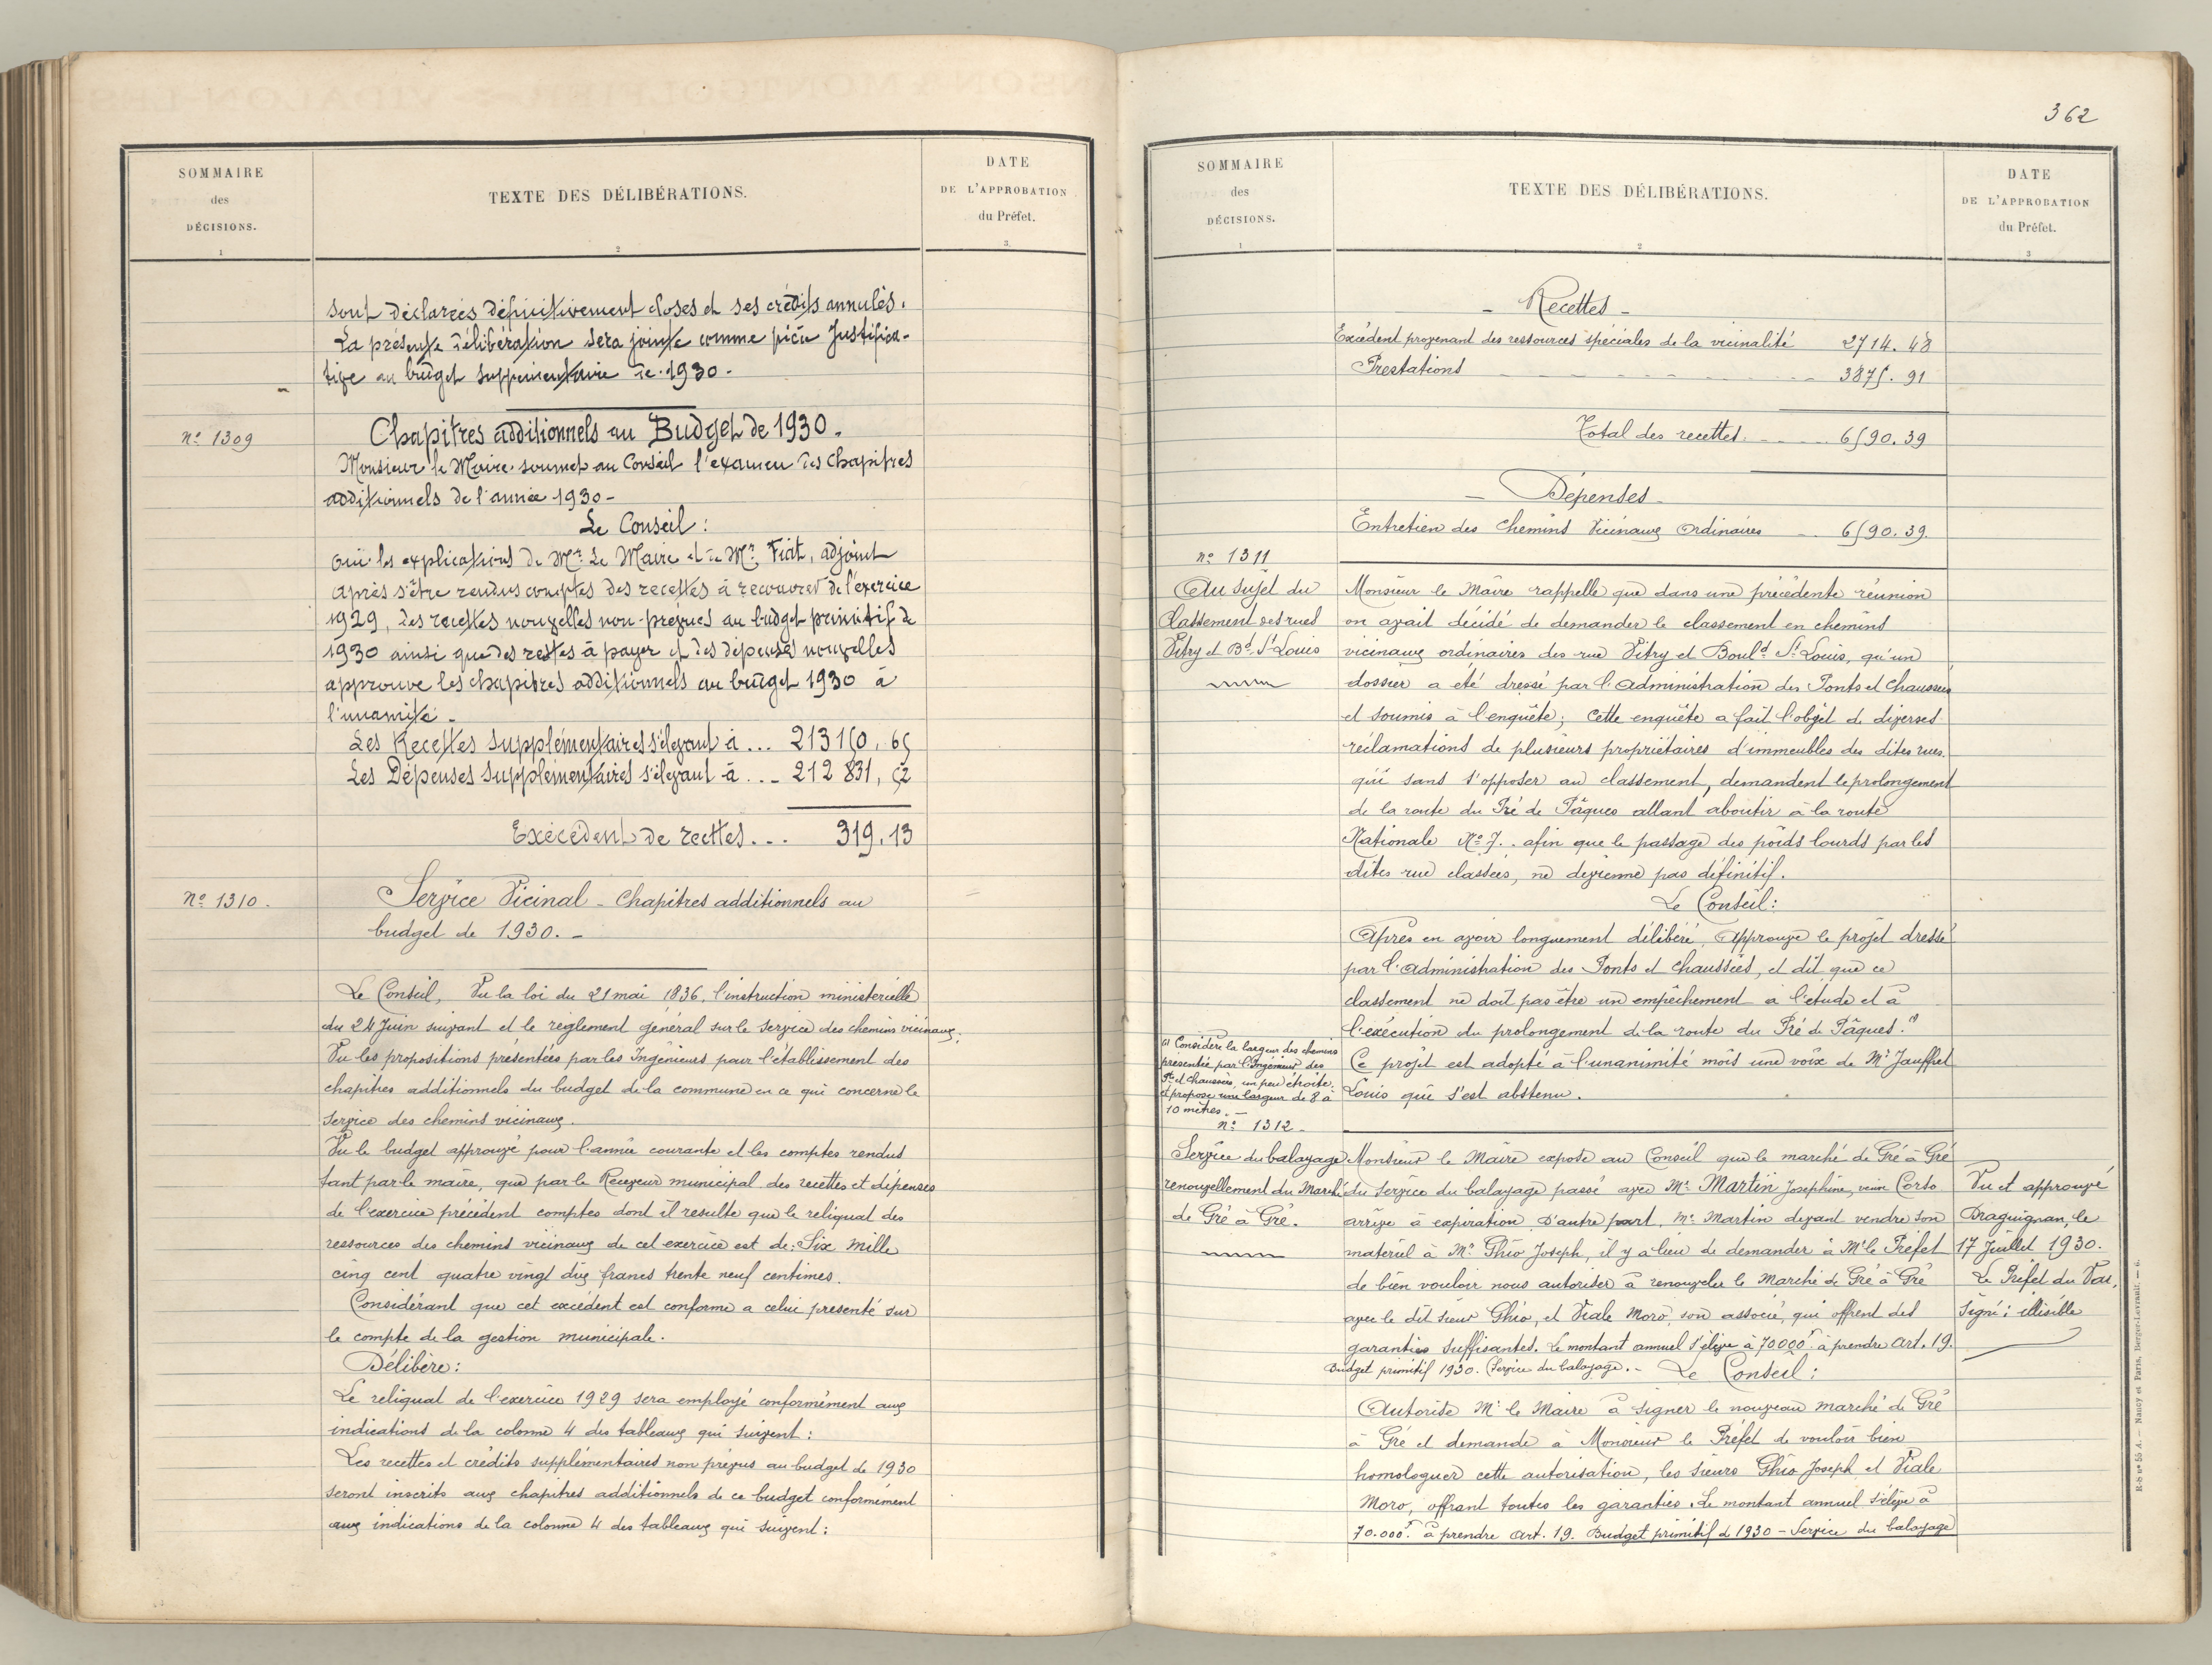 SOMMAIRE
des
DÉCISIONS.
1
TEXTE DES DÉLIBÉRATIONS.
2
DATE
DE L'APPROBATION
du Préfet.
3.
sont déclarées définitivement closes et ses crédits annulés.
La présente délibération sera jointe comme pièce Justifica-
tive au budget supplémentaire de 1930.
Nº 1309
Chapitres additionnels au Budget de 1930.
Monsieur le Maire soumet au Conseil l'examen des Chapitres
additionnels de l'année 1930 -
Le Conseil :
Ouï les explications de Mr. Le Maire et de Mr. Fiat, adjoint
Après s'être rendus comptes des recettes à recouvrer de l'exercice
1929, des recettes nouvelles non-prévues au budget primitif de
1930 ainsi que des restes à payer et des dépenses nouvelles
approuve les chapitres additionnels au budget 1930 à
l'unamité -
Les Recettes supplémentaires s'élevant à ... 213150, 65
Les Dépenses supplémentaires s'élevant à ... 212 831, 52
Exécédent de recttes ... 319, 13
Nº 1310.
Service Vicinal - Chapitres additionnels au
budget de 1930. -
Le Conseil, Vu la loi du 21 mai 1836, l'instruction ministerielle
du 24 Juin suivant et le règlement général sur le service des chemins vicinaux.
Vu les propositions présentées par les Ingénieurs pour l'établissement des
chapitres additionnels du budget de la commune en ce qui concerne le
service des chemins vicinaux.
Vu le budget approuvé pour l'année courante et les comptes rendus
tant par le maire, que par le Receveur municipal des recettes et dépenses
de l'exercice précédent comptes dont il resulte que le reliquat des
ressources des chemins vicinaux de cet exercice est de: Six mille
cinq cent quatre vingt dix francs trente neuf centimes.
Considérant que cet excédent est conforme a celui presenté sur
le compte de la gestion municipale.
Délibère :
Le reliquat de l'exercice 1929 sera employé conformément aux
indications de la colonne 4 des tableaux qui suivent :
Les recettes et crédits supplémentaires non prévus au budget de 1930
seront inscrits aux chapitres additionnels de ce budget conformément
aux indications de la colonne 4 des tableaux qui suivent :
362
SOMMAIRE
des
DÉCISIONS.
1
TEXTE DES DÉLIBÉRATIONS.
2
DATE
DE L'APPROBATION
du Préfet.
3
- Recettes -
Excédent provenant des ressources spéciales de la vicinalité 2714. 48
Prestations 3875. 91
Total des recettes 6590.39
- Dépenses -
Entretien des Chemins Vicinaux Ordinaires 6590.39.
nº 1311
Au sujet du
Classement des rues
Vitry et Bd. St Louis
Monsieur le Maire rappelle que dans une précédente réunion
on avait décidé de demander le classement en chemins
vicinaux ordinaires des rue Vitry et Bould St. Louis, qu'un
dossier a été dressé par l'Administration des Ponts et Chaussées
et soumis à l'enquête ; Cette enquête a fait l'objet de diverses
réclamations de plusieurs propriétaires d'immeubles des dites rues.
qui sans s'opposer au classement, demandent le prolongement
de la route du Pré de Pâques allant aboutir à la route
Nationale Nº 7. . afin que le passage des poids lourds par les
dites rue classées, ne devienne pas définitif.
Le Conseil :
Après en avoir longuement délibéré, Approuve le projet dressé
par l'Administration des Ponts et Chaussées, et dit que ce
classement ne doit pas être un empêchement à l'étude et à
l'exécution du prolongement de la route du Pré de Pâques. (1)
Ce projet est adopté à l'unanimité mois une voix de Mr Jauffret
Louis qui s'est abstenu.
(1) Considère la largeur des chemins
présentée par l'Ingénieur des
Pts et Chaussées, un peu étroite.
et propose une largeur de 8 à
10 mètres. -
nº 1312 -
Service du balayage
renouvellement du Marché
de Gré à Gré.
Monsieur le Maire expose au Conseil que le marché de Gré à Gré
du service du balayage passé avec Me Martin Joséphine, veuve Corso
arrive à expiration. D'autre part, Me Martin devant vendre son
matériel à Mr. Ghio Joseph, il y a lieu de demander à Mr le Préfet
de bien vouloir nous autoriser à renouveler le Marché de Gré à Gré
avec le dit sieur Ghio, et Viale Moro, son associé, qui offrent des
garanties suffisantes. Le montant annuel s'élève à 70000f. à prendre Art. 19.
Budget primitif 1930. (Service du balayage. - Le Conseil :
Autorise Mr le Maire à signer le nouveau marché de Gré
à Gré et demande à Monsieur le Préfet de vouloir bien
homologuer cette autorisation, les sieurs Ghio Joseph et Viale
Moro, offrant toutes les garanties. Le montant annuel s'élève à
70.000f. à prendre Art. 19. Budget primitif de 1930 - Service du balayage
Vu et approuvé
Draguignan, le
17 Juillet 1930.
Le Préfet du Var,
Signé : illisible
R-b nº 55 A. — Nancy et Paris, Berger-Levrault. — 6.